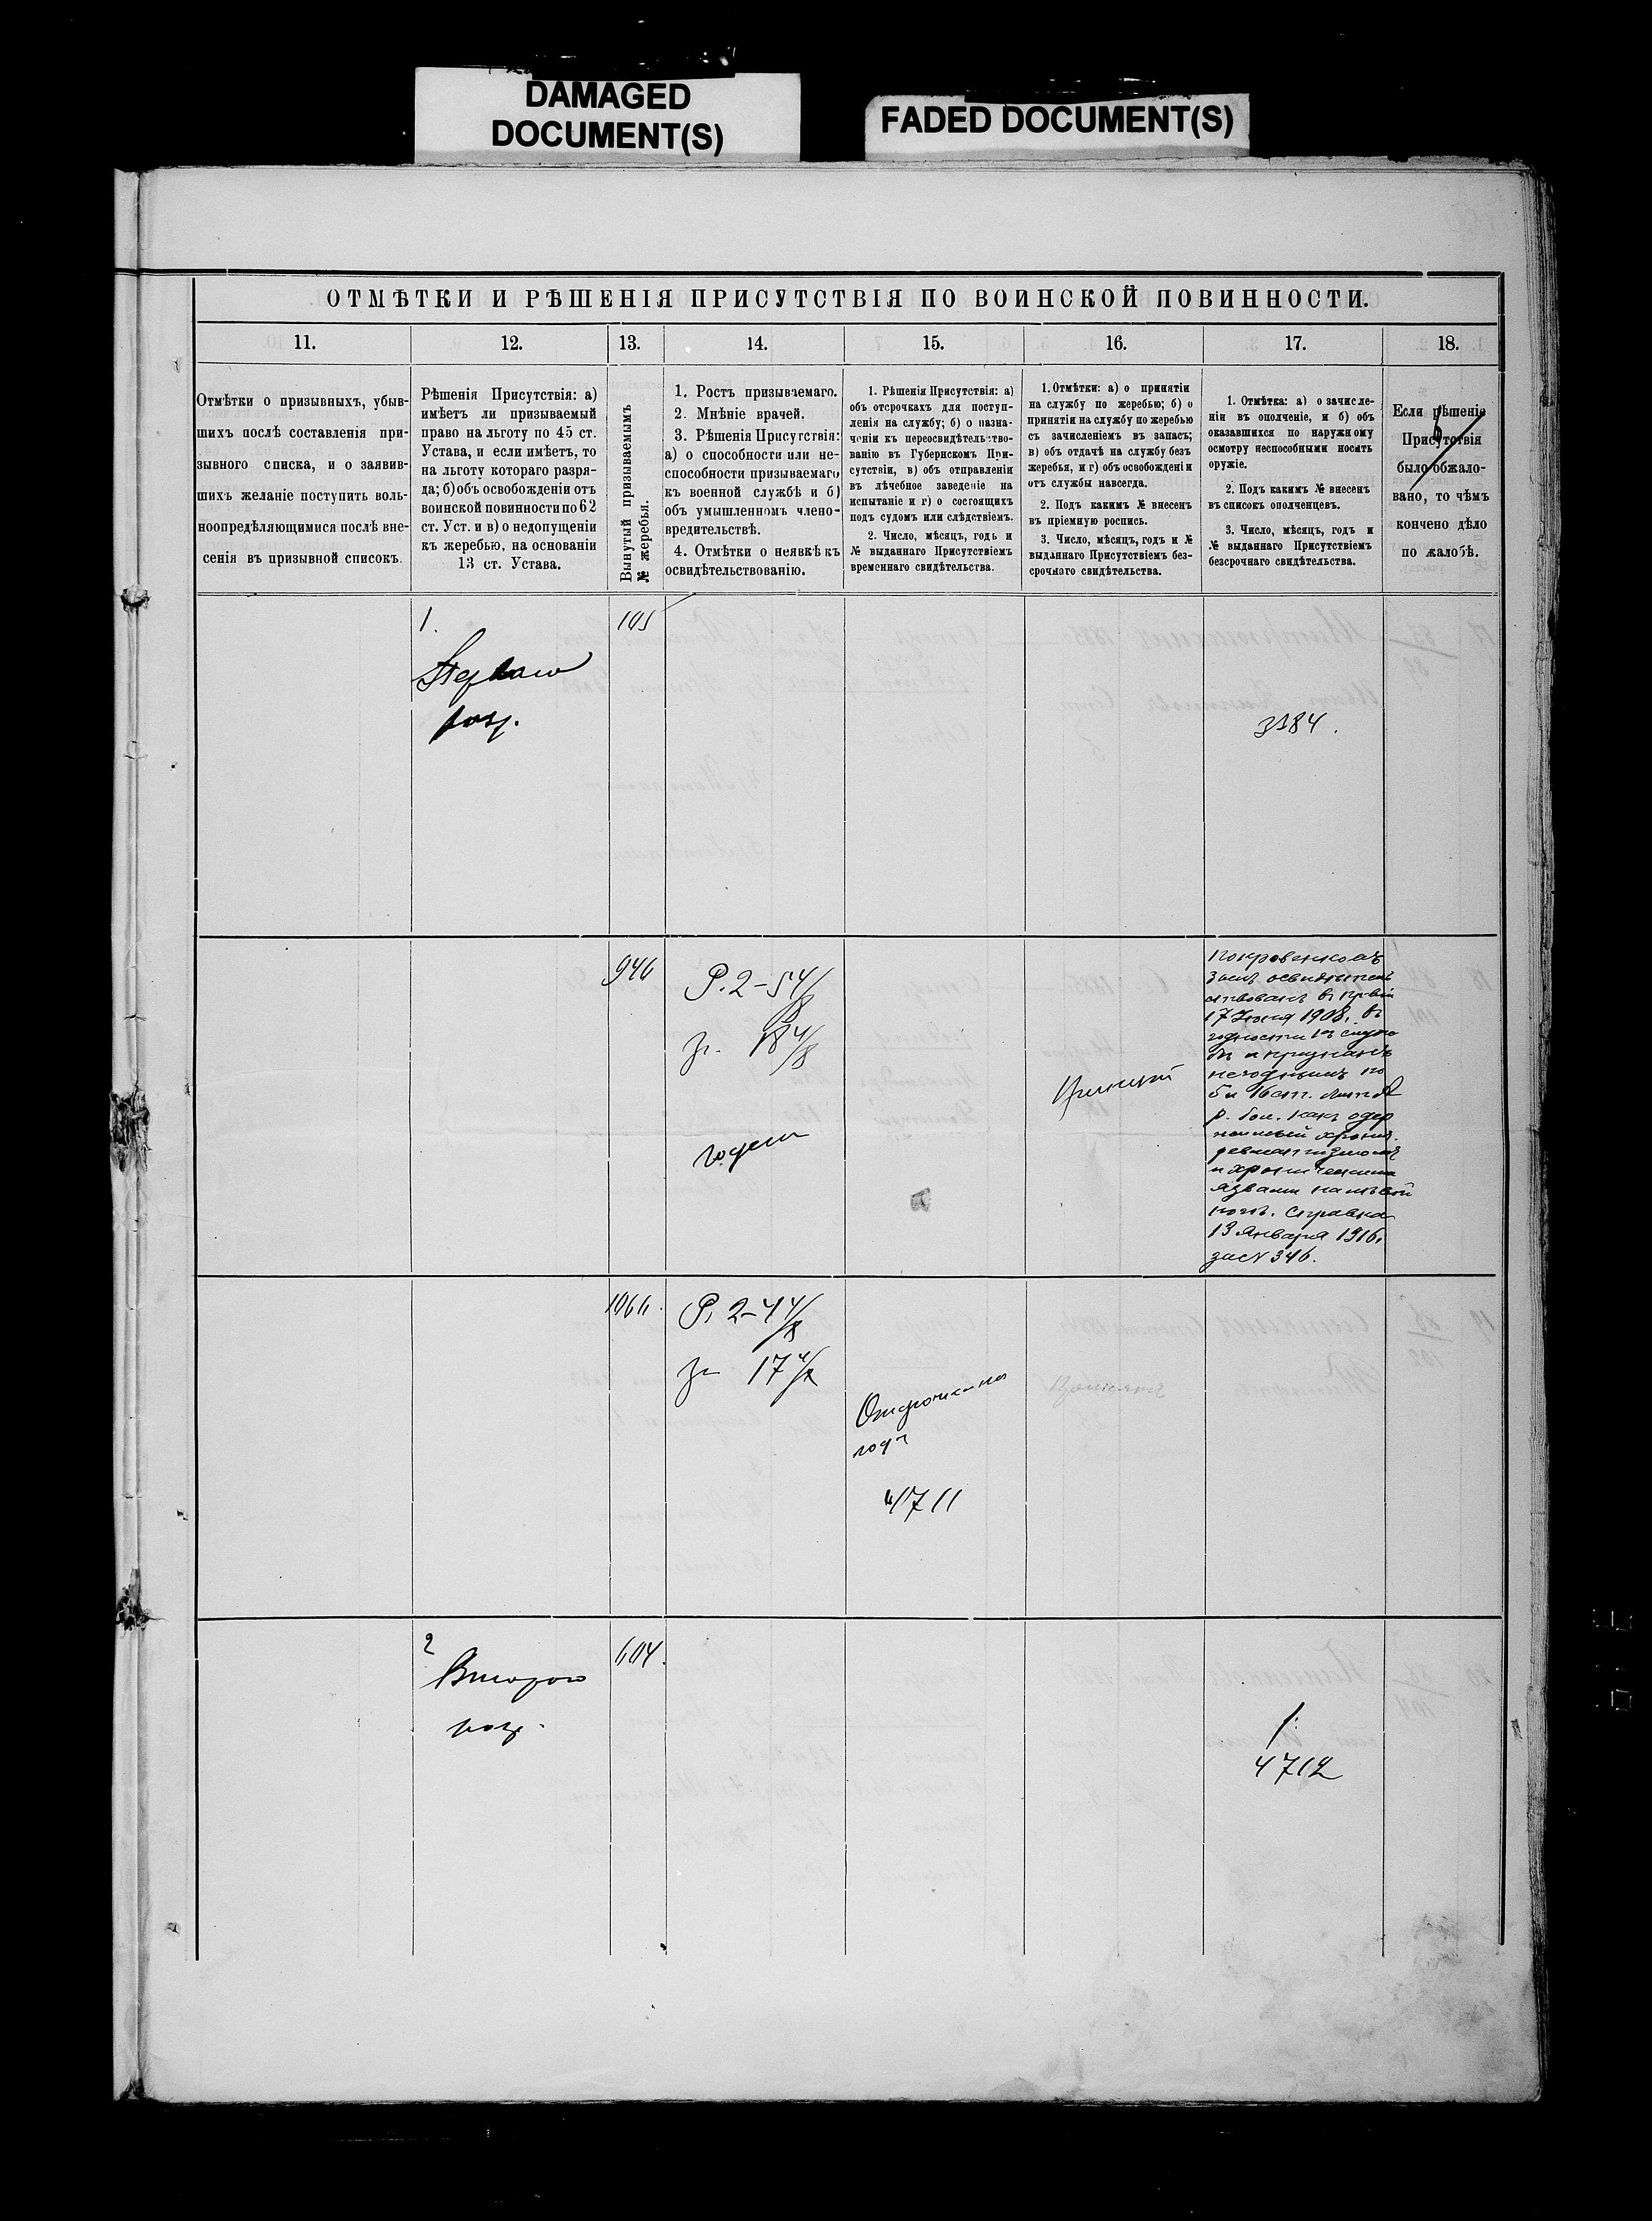 DAMAGED
DOCUMENT(S)
FADED DOCUMENT(S)
ОТМѢТКИ И РѢШЕНІЯ ПРИСУТСТВІЯ ПО ВОИНСКОЙ ПОВИННОСТИ.
11.
12.
13.
14.
15.
16.
17.
18.
Отмѣтки о призывныхъ, убыв-
шихъ послѣ составленія при-
зывного списка, и о заявив-
шихъ желаніе поступить воль-
ноопредѣляющимися послѣ вне-
сенія въ призывной списокъ.
Рѣшенія Присутствія: а)
имѣетъ ли призываемый
право на льготу по 45 ст.
Устава, и если имѣетъ, то
на льготу котораго разря-
да; б) объ освобожденіи отъ
воинской повинности по 62
ст. Уст. и в) о недопущеніи
къ жеребью, на основаніи
13 ст. Устава.
Вынутый призываемымъ
№ жеребья.
1. Ростъ призываемаго.
2. Мнѣніе врачей.
3. Рѣшенія Присутствія:
а) о способности или не-
способности призываемаго
къ военной службѣ и б)
объ умышленномъ члено-
вредительствѣ.
4. Отмѣтки о неявкѣ къ
освидѣтельствованію.
1. Рѣшенія Присутствія: а)
объ отсрочкахъ для поступ-
ленія на службу; б) о назна-
ченіи къ переосвидѣтельство-
ванію въ Губернскомъ При-
сутствіи, в) объ отправленіи
въ лѣчебное заведеніе на
испытаніе и г) о состоящихъ
подъ судомъ или слѣдствіемъ.
2. Число, мѣсяцъ, годъ и
№ выданнаго Присутствіемъ
временнаго свидѣтельства.
1. Отмѣтки: а) о принятіи
на службу по жеребью; б) о
принятіи на службу по жеребью
съ зачисленіемъ въ запасъ;
в) объ отдачѣ на службу безъ
жеребья, и г) объ освобожденіи
отъ службы навсегда.
2. Подъ какимъ № внесенъ
въ пріемную роспись.
3. Число, мѣсяцъ, годъ и №
выданнаго Присутствіемъ без-
срочнаго свидѣтельства.
1. Отмѣтка: а) о зачисле-
ніи въ ополченіе, и б) объ
оказавшихся по наружному
осмотру неспособными носить
оружіе.
2. Подъ какимъ № внесенъ
въ списокъ ополченцевъ.
3. Число, мѣсяцъ, годъ и
№ выданнаго Присутствіемъ
безсрочнаго свидѣтельства.
Если рѣшеніе
Присутствія
было обжало-
вано, то чѣмъ
кончено дѣло
по жалобѣ.
1.
105
Перваго
разр.
3184.
946
Р. 2-5 4/8
гр. 18 4/8
годенъ
Принятъ
17 Іюня 1908 г. въ
годности къ служ
бѣ и признанъ
негоднымъ по
р. бол. какъ одер
ревматизмомъ
и хроническими
язвами на лѣвой
ногѣ. Справка
13 Января 1916 г.
за № 346.
1066.
Р. 2-4 4/8
гр 17 4/8
Отсрочка на
годъ
4711
2
Второго
разр.
604.
4712